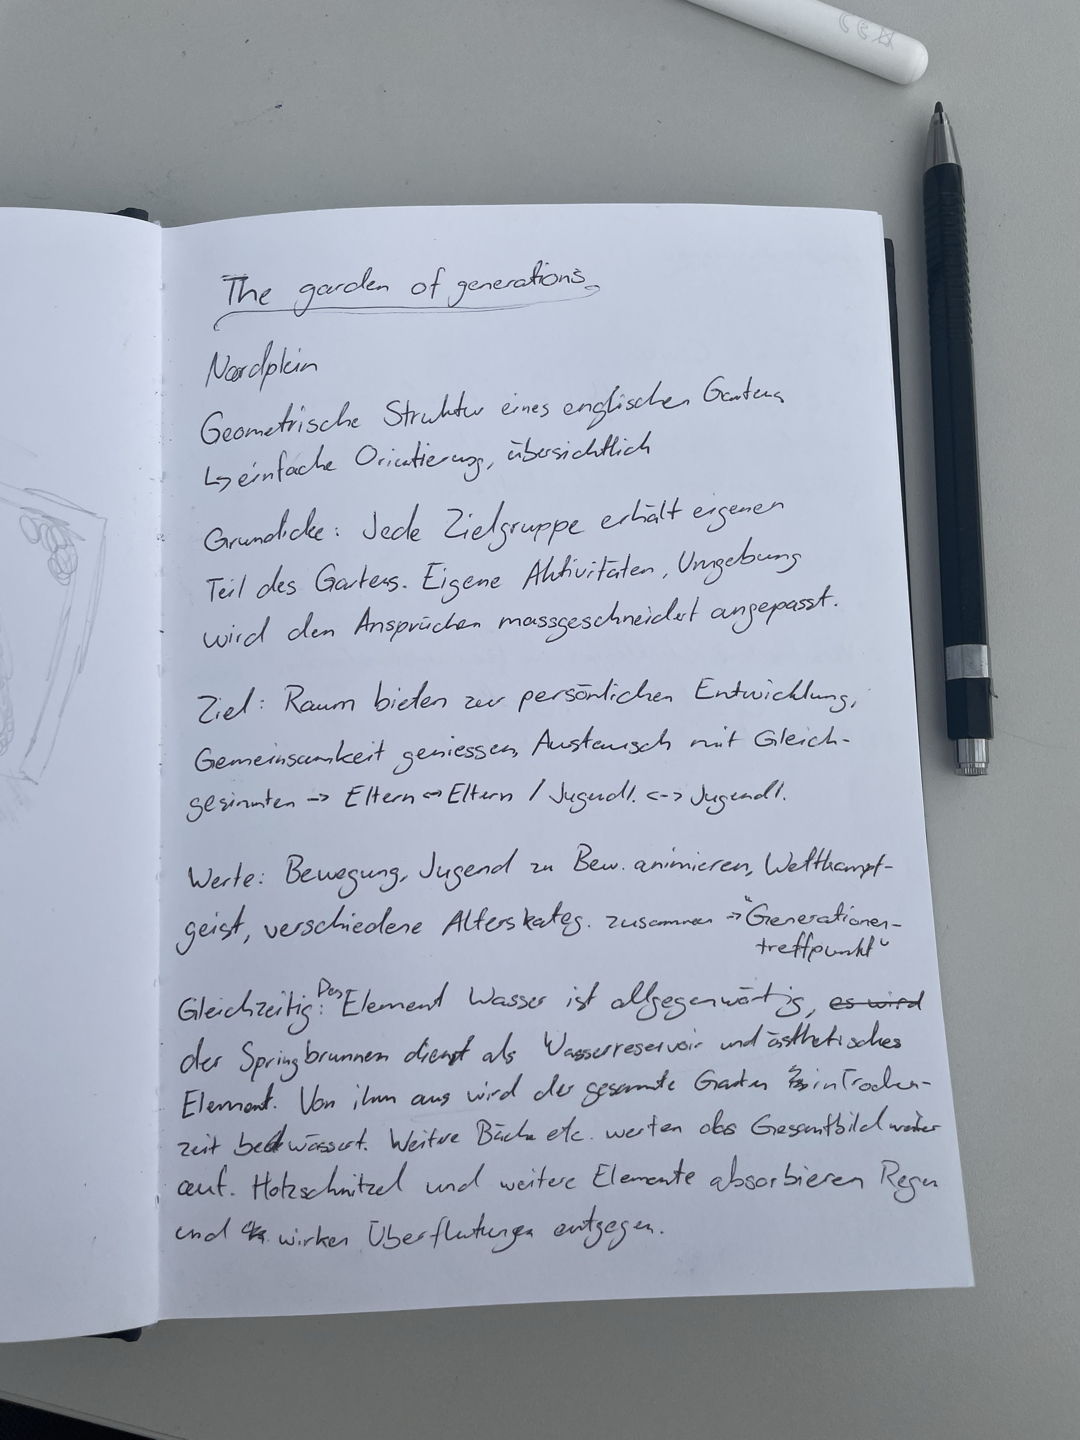 The garden of generations
Nordplein
Geometrische Struktur eines englischen Gartens
↳ einfache Orientierung, übersichtlich
Grundidee: Jede Zielgruppe erhält eigenen
Teil des Gartens. Eigene Aktivitäten, Umgebung
wird den Ansprüchen massgeschneidert angepasst.
Ziel: Raum bieten zur persönlichen Entwicklung,
Gemeinsamkeit geniessen, Austausch mit Gleich-
gesinnten -> Eltern <-> Eltern / Jugendl. <-> Jugendl.
Werte: Bewegung, Jugend zu Bew. animieren, Wettkampf-
geist, verschiedene Alterskateg. zusammen -> "Generationen-
treffpunkt"
Gleichzeitig: Das Element Wasser ist allgegenwärtig, es wird
der Springbrunnen dient als Wasserreservoir und ästhetisches
Element. Von ihm aus wird der gesamte Garten in Trocken-
zeit bewässert. Weitere Bäche etc. werten das Gesamtbild weiter
auf. Holzschnitzel und weitere Elemente absorbieren Regen
und wirken Überflutungen entgegen.
CE